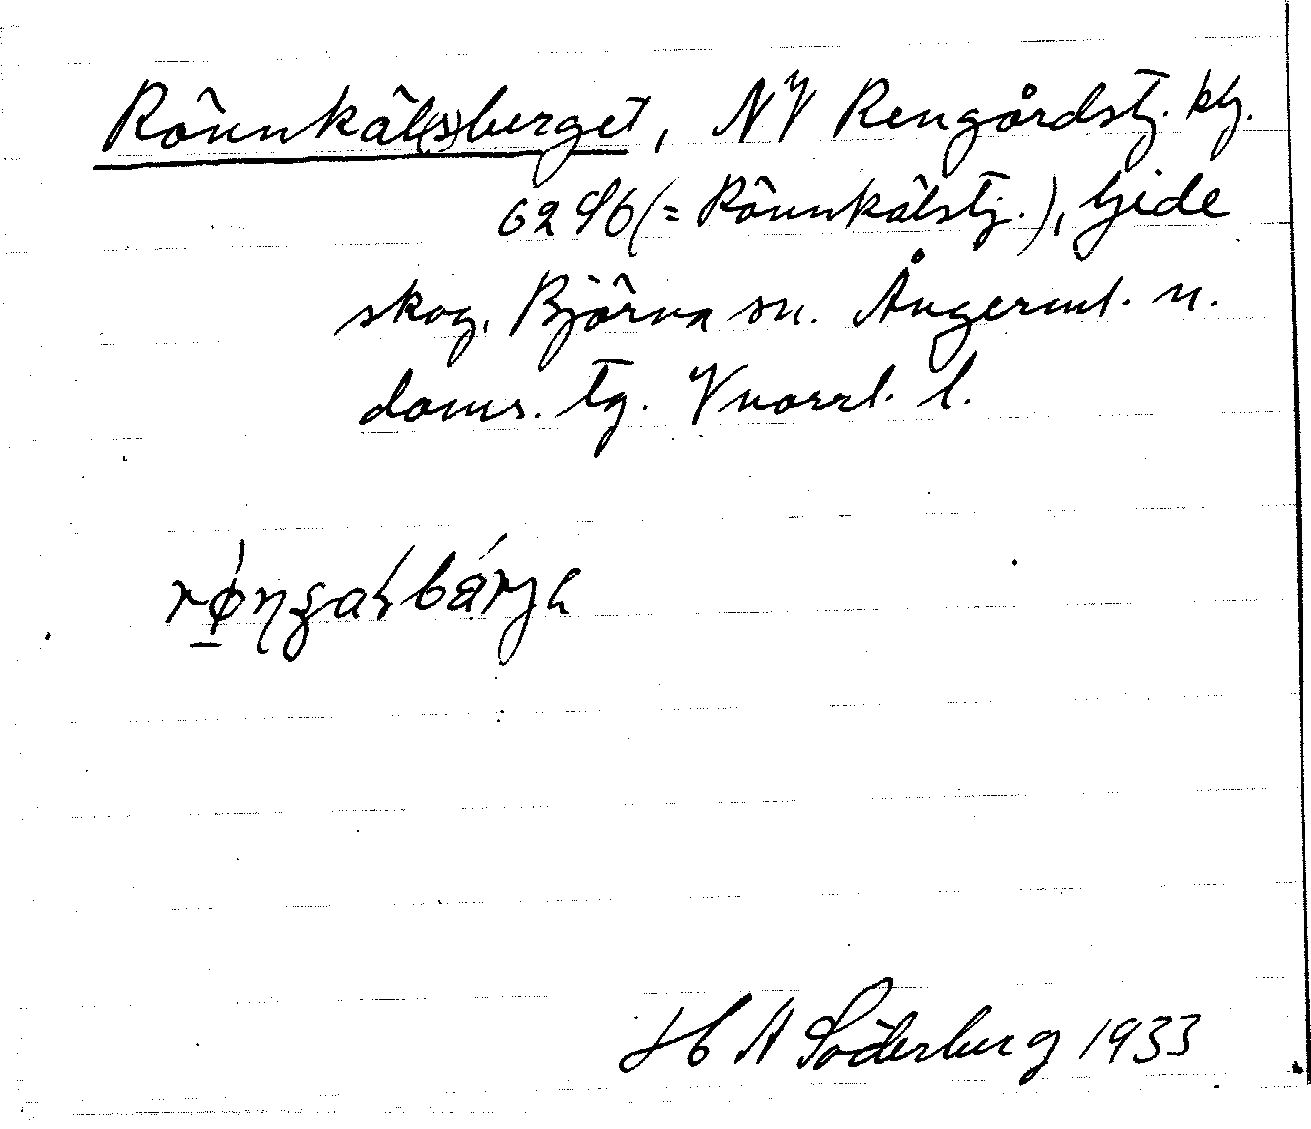 Rönnkäl(s)berget, NV Rengårdstj. kly.
62 Sb (= Rönnkälstj.), Gide
skog, Björna sn. Ångerml. n.
doms. tg. Vnorrl. l.
H A Söderberg 1933